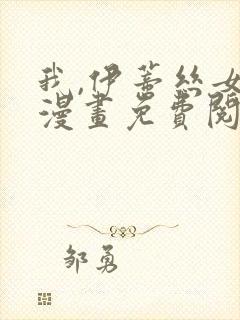 我,伊蒂丝女
漫畫免費閱
邹勇